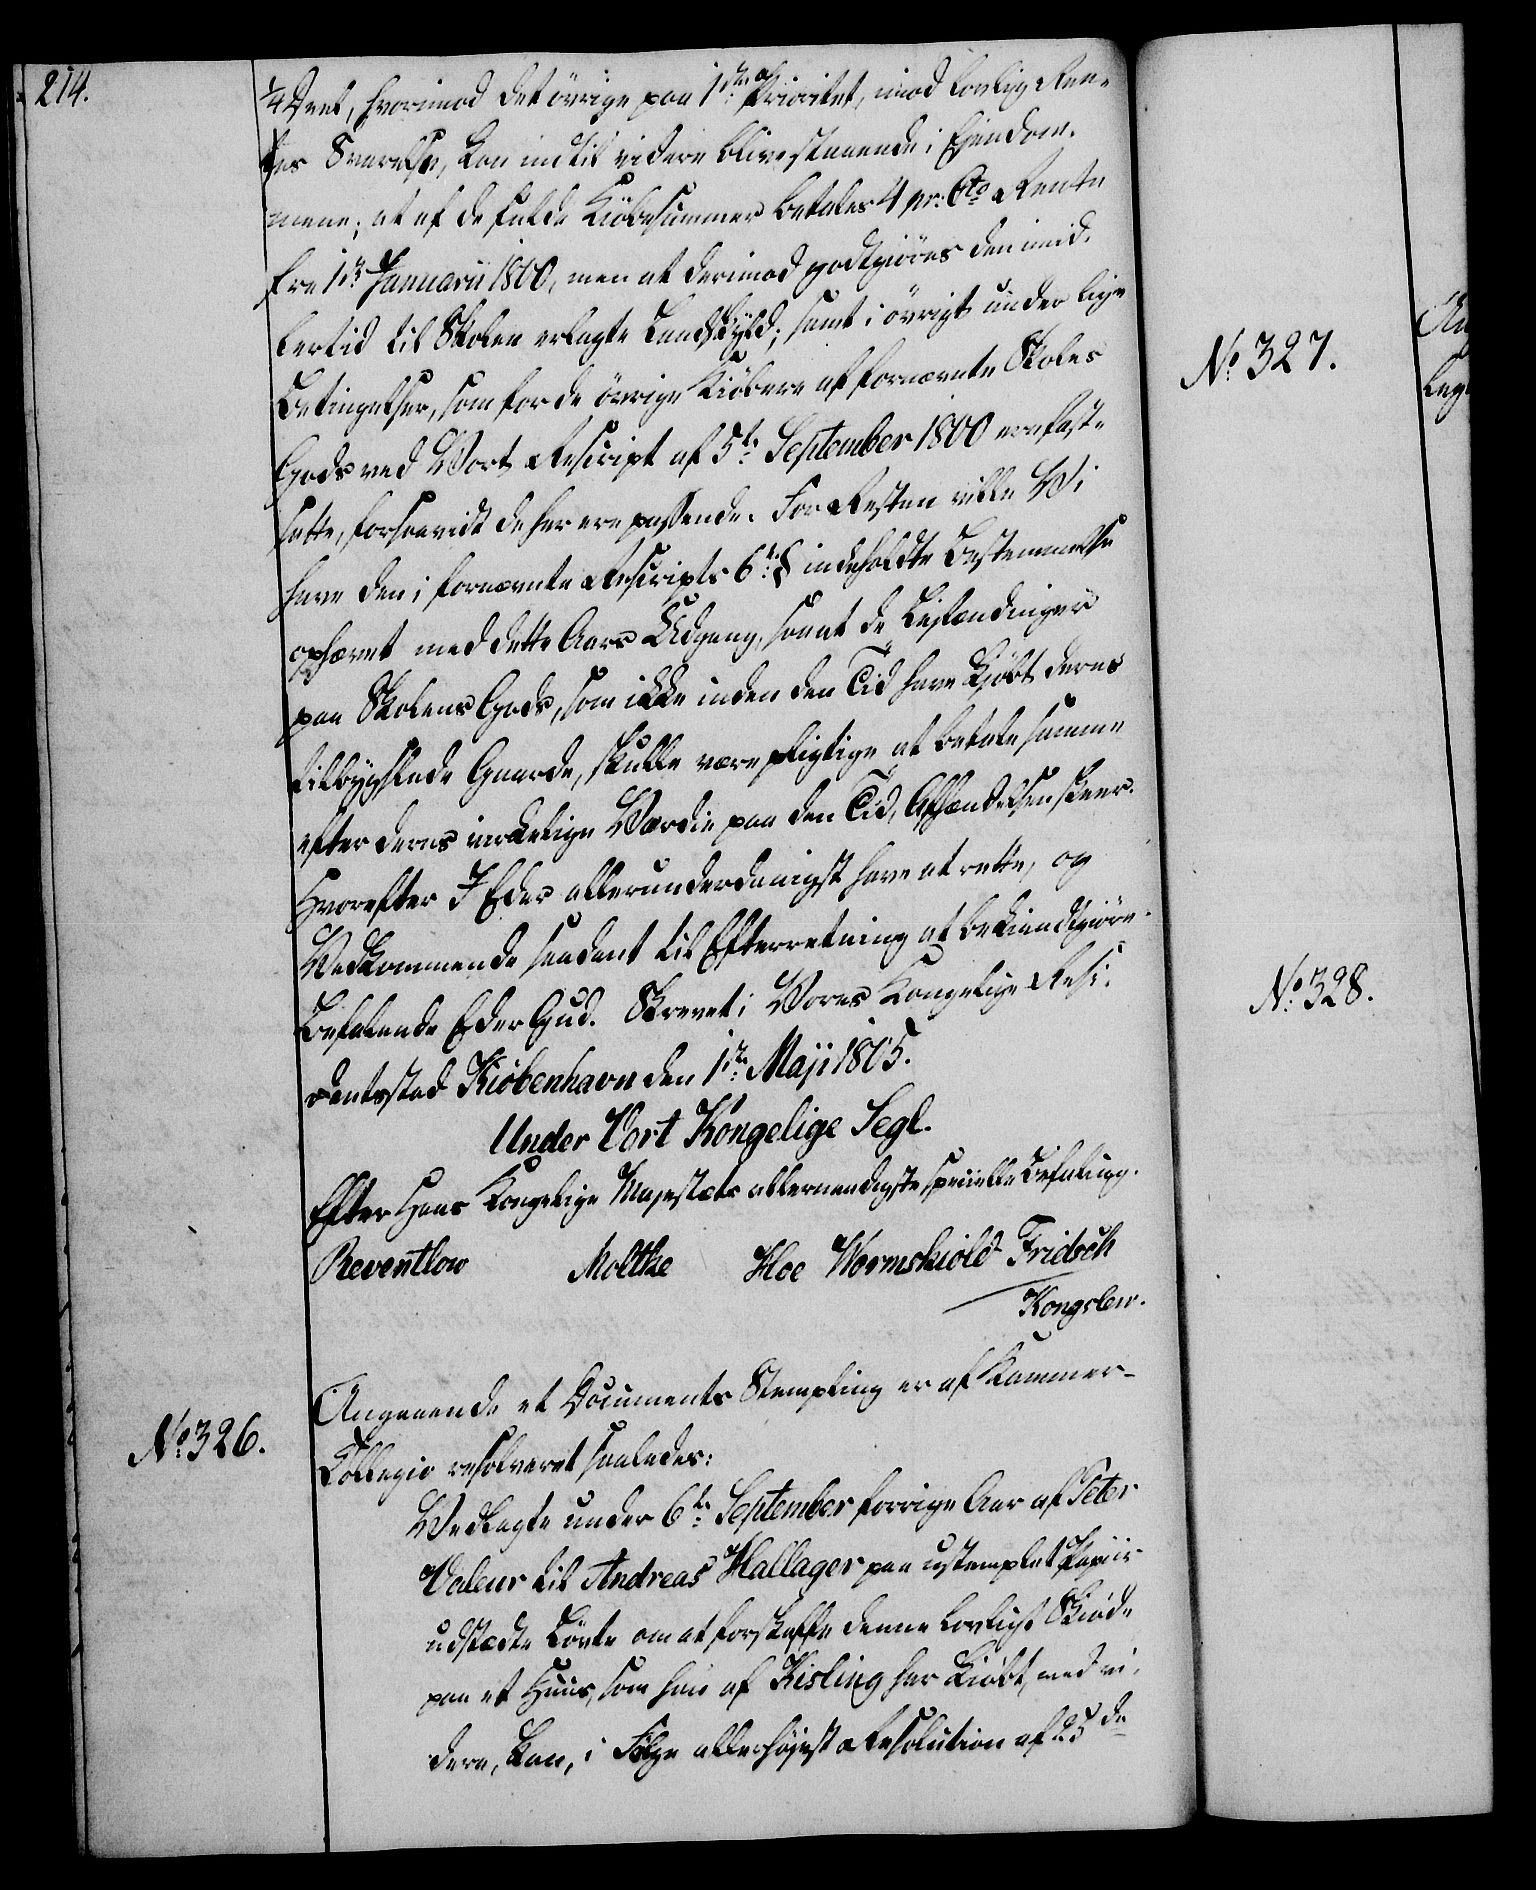 214.
1/4 Deel, hvorimod det övrige paa 1ste Prioritet, imod lovlig Ren-
tes Svarelse, kan indtil videre blive staaende i Ejendom-
mene; at af de fulde Kiöbesummer betales 4 pr: Cto Rente
fra 1ste Januarii 1800, men at derimod godtgiöres den imid-
lertid til Skolen erlagte Landskyld; samt i övrigt under lige
Betingelser, som for de övrige Kiöbere af fornævnte Skoles
Gods ved Vort Rescript af 5te September 1800 ere fast-
satte, forsaavidt de her ere passende. For Resten ville Vi
have den i fornævnte Rescripts 6te § indeholdte Bestemmelse
ophævet med dette Aars Udgang, saa at de Leilændinger
paa Skolens Gods, som ikke inden den Tid have kjöbt deres
tilbygslede Gaarde, skulle være pligtige at betale samme
efter deres virkelige Værdie paa den Tid, Afhændelsen skeer.
Hvorefter I Eder allerunderdanigst have at rette, og
Vedkommende saadant til Efterretning at bekiendtgiöre.
Befalende Eder Gud. Skrevet i Vores Kongelige Resi-
dentsstad Kiöbenhavn den 1ste Maji 1805.
Under Vort Kongelige Segl.
Efter Hans Kongelige Majestæts allernaadigste specielle Befaling.
Reventlow Moltke Hoe Wormskiold Fridsch
Kongslew.
No 326.
Angaaende et Documents Stempling er af Kammer-
Collegio resolveret saaledes:
Vedlagte under 6te September forrige Aar af Peter
Valeur til Andreas Hallager paa ustemplet Papiir
udstædte Löfte om at forskaffe denne lovligt Skiöde
paa et Huus, som han af Kisling har kiöbt, med vi-
dere, kan, i Fölge allerhöjeste Resolution af 25de
No 327.
No 328.